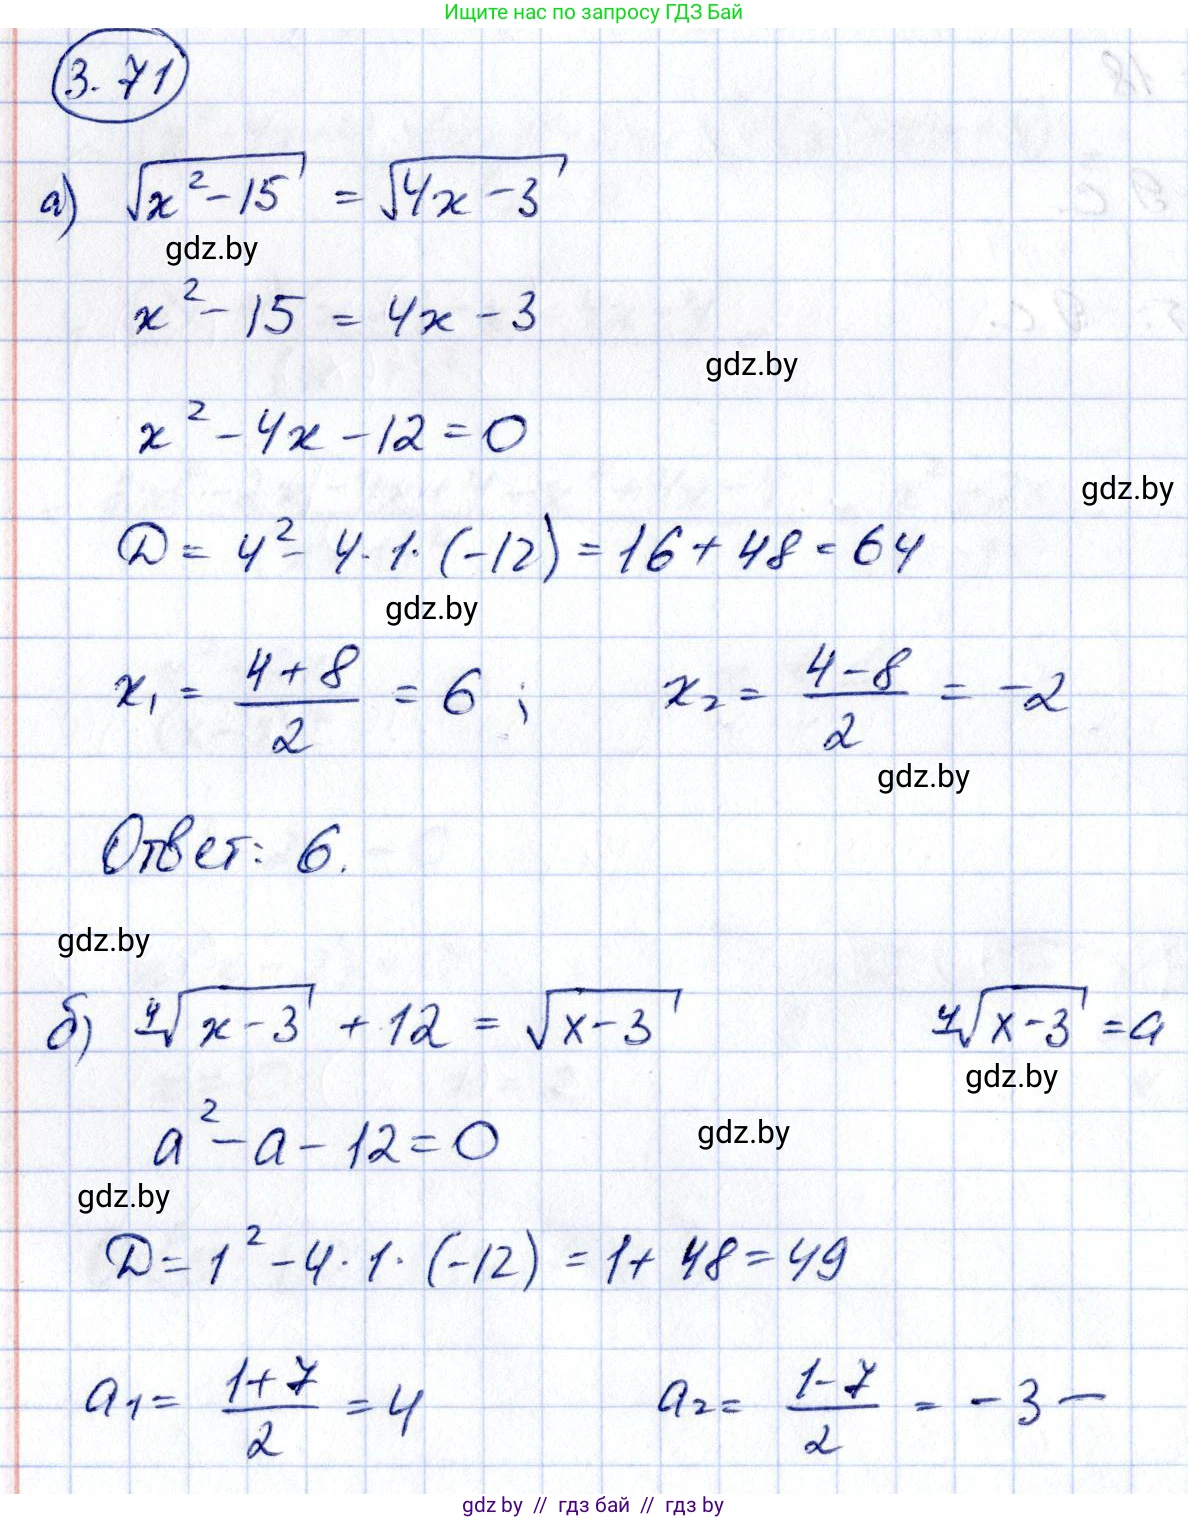 Ищите нас по запросу ГДЗ Бай
3.71
а) √(x² - 15) = √(4x - 3)
gdz.by
x² - 15 = 4x - 3
gdz.by
x² - 4x - 12 = 0
gdz.by
D = 4² - 4 · 1 · (-12) = 16 + 48 = 64
gdz.by
x₁ = (4 + 8)/2 = 6 ; x₂ = (4 - 8)/2 = -2
gdz.by
Ответ: 6.
gdz.by
б) ⁴√(x - 3) + 12 = √(x - 3) ⁴√(x - 3) = a
gdz.by
a² - a - 12 = 0
gdz.by
gdz.by
D = 1² - 4 · 1 · (-12) = 1 + 48 = 49
a₁ = (1 + 7)/2 = 4 a₂ = (1 - 7)/2 = -3 –
gdz by // гдз бай // гдз by